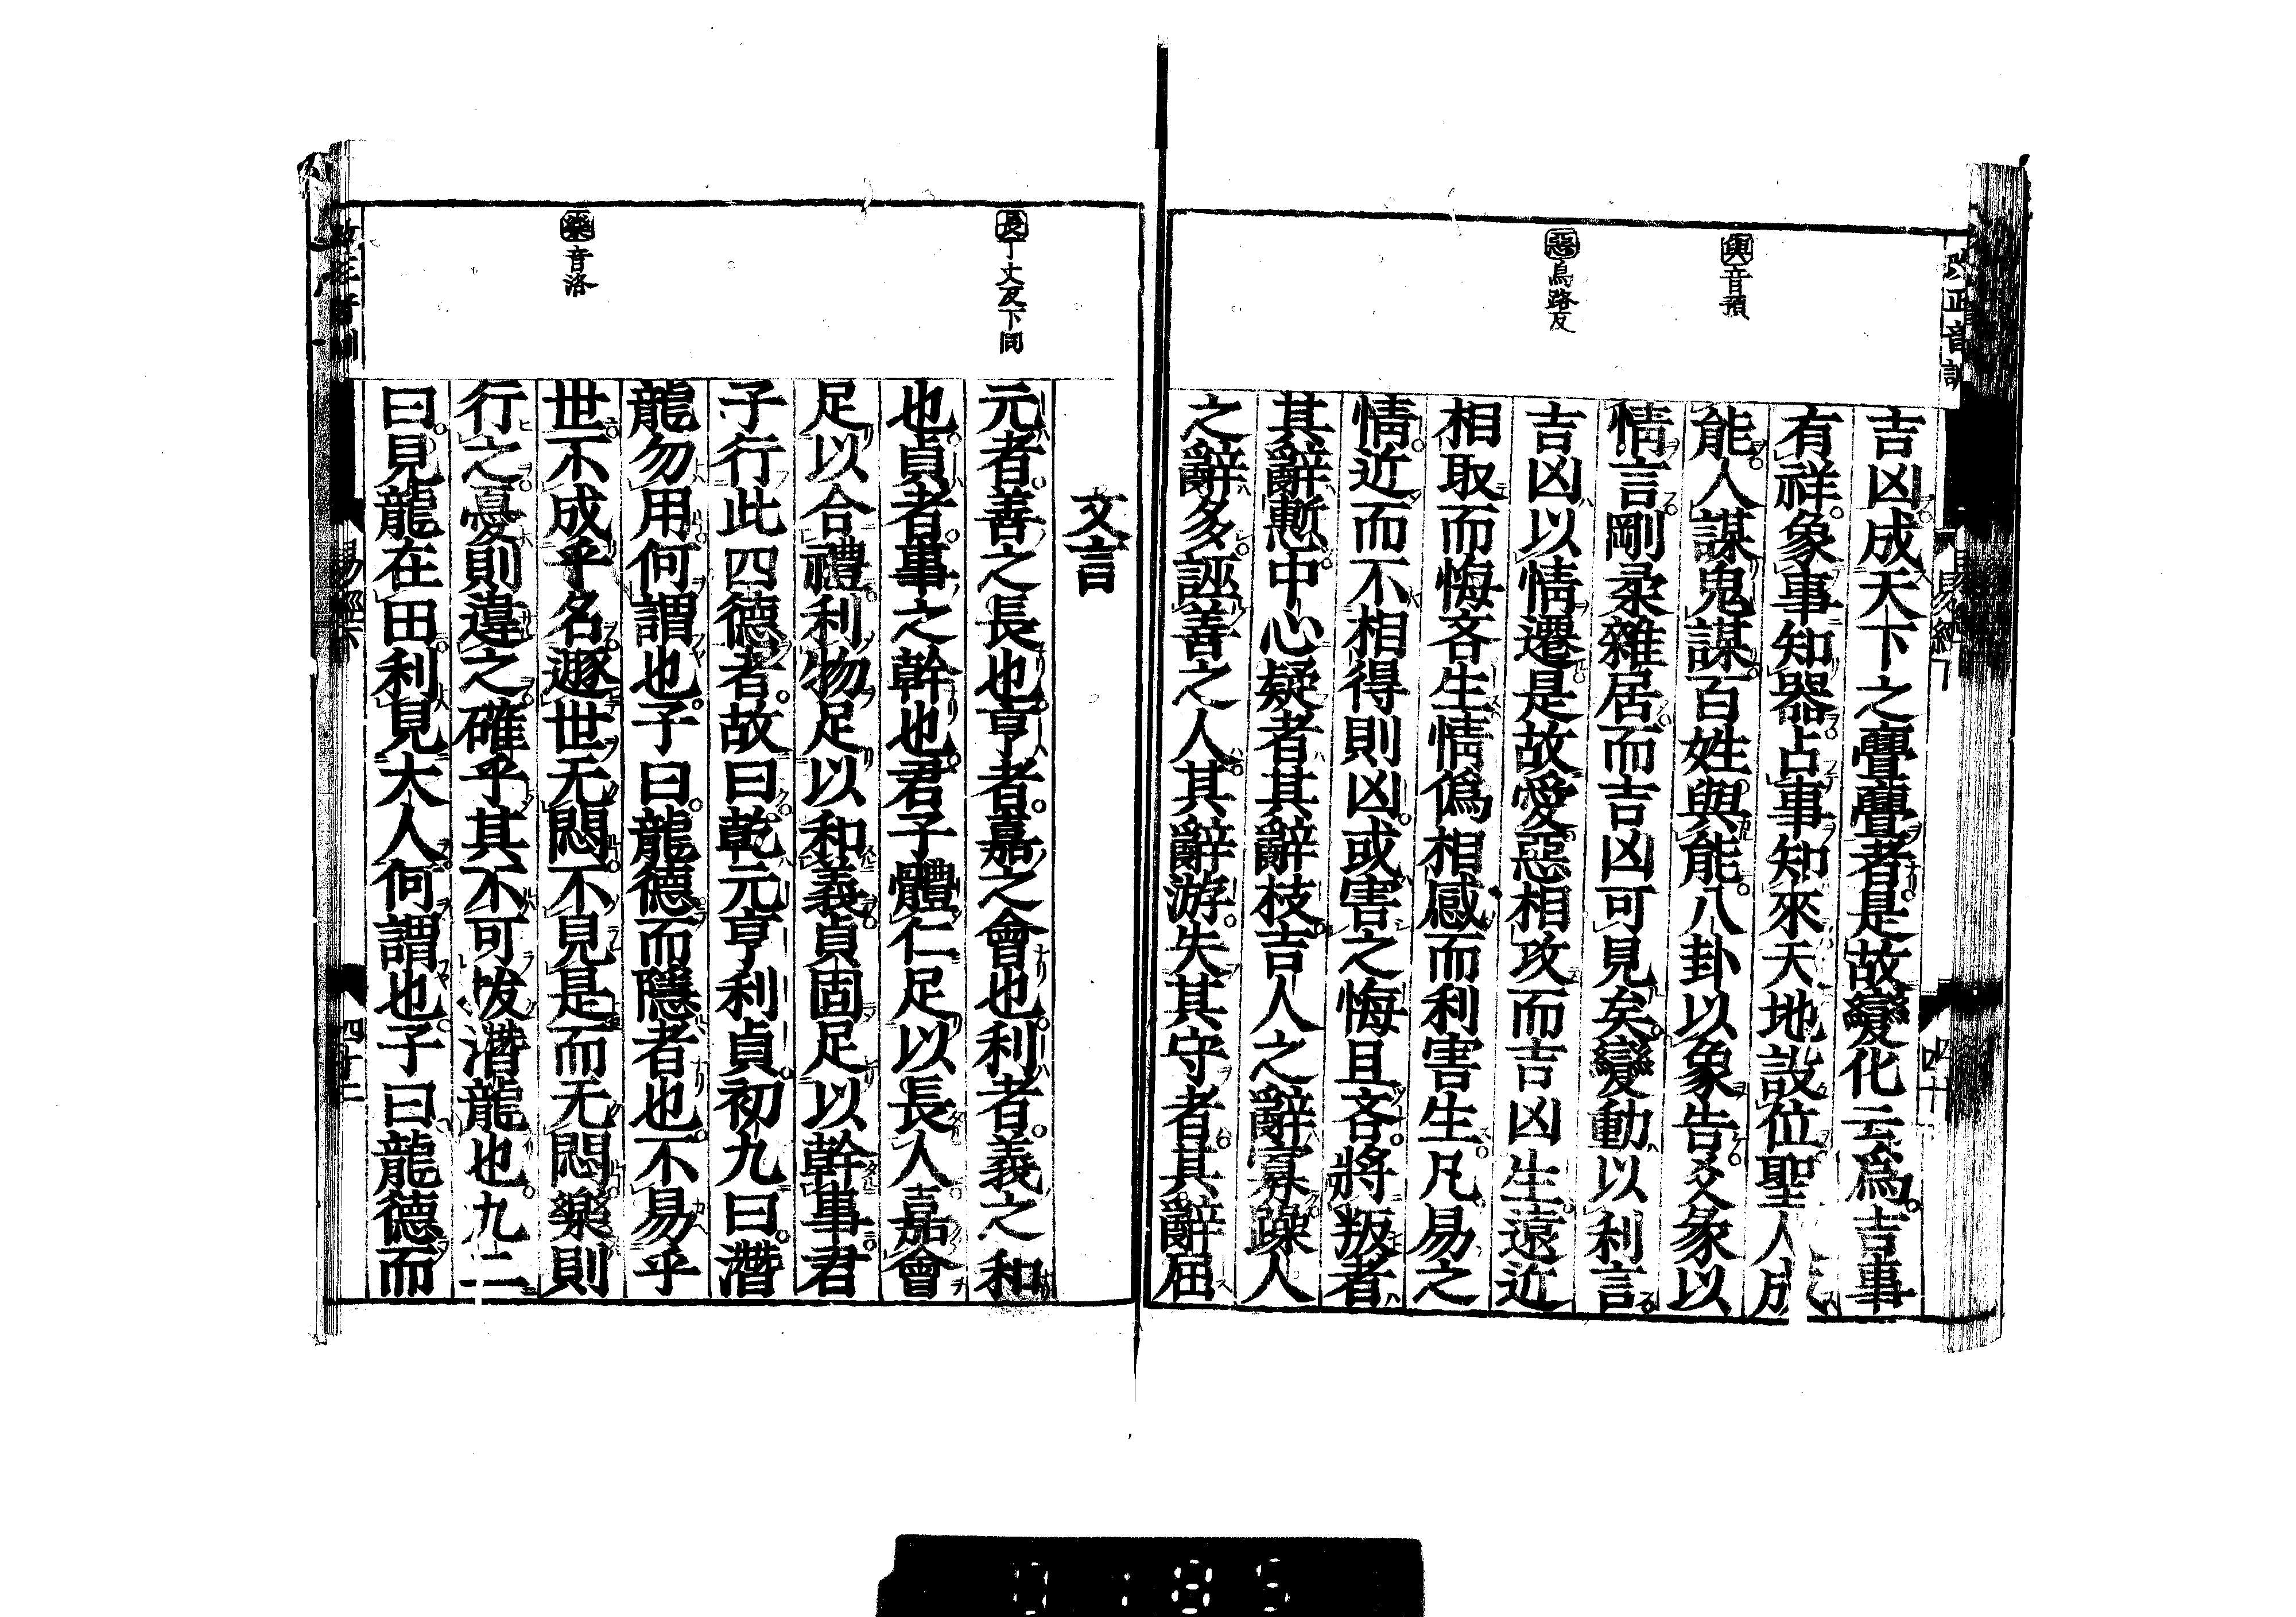 改正音訓
易經下
四十一
與音預
惡烏路反
吉凶成天下之亹亹者是故變化云爲吉事
有祥象事知器占事知來天地設位聖人成
能人謀鬼謀百姓與能八卦以象告爻彖以
情言剛柔雜居而吉凶可見矣變動以利言
吉凶以情遷是故愛惡相攻而吉凶生遠近
相取而悔吝生情僞相感而利害生凡易之
情近而不相得則凶或害之悔且吝將叛者
其辭慙中心疑者其辭枝吉人之辭寡躁人
之辭多誣善之人其辭游失其守者其辭屈
長丁丈反下同
樂音洛
文言
元者善之長也亨者嘉之會也利者義之和
也貞者事之幹也君子體仁足以長人嘉會
足以合禮利物足以和義貞固足以幹事君
子行此四德者故曰乾元亨利貞初九曰潛
龍勿用何謂也子曰龍德而隱者也不易乎
世不成乎名遯世无悶不見是而无悶樂則
行之憂則違之確乎其不可拔潛龍也九二
曰見龍在田利見大人何謂也子曰龍德而
四十二
0185